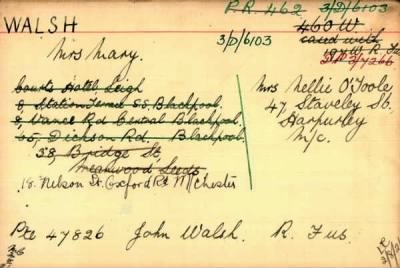 P.R. 462 3/D/6103
WALSH 460 W
Mrs Mary. 3/D/6103 cased with
Courts Hotel, Leigh
8 Station Terrace S.S. Blackpool.
8, Vance Rd Central Blackpool.
35, Dickson Rd. Blackpool.
38, Bridge St,
Meanwood Leeds
18. Nelson St. Oxford Rd M/Chester
Mrs Nellie O'Toole
47 Staveley St.
Harpurley
M/c.
Pte 47826 John Walsh. R. Fus.